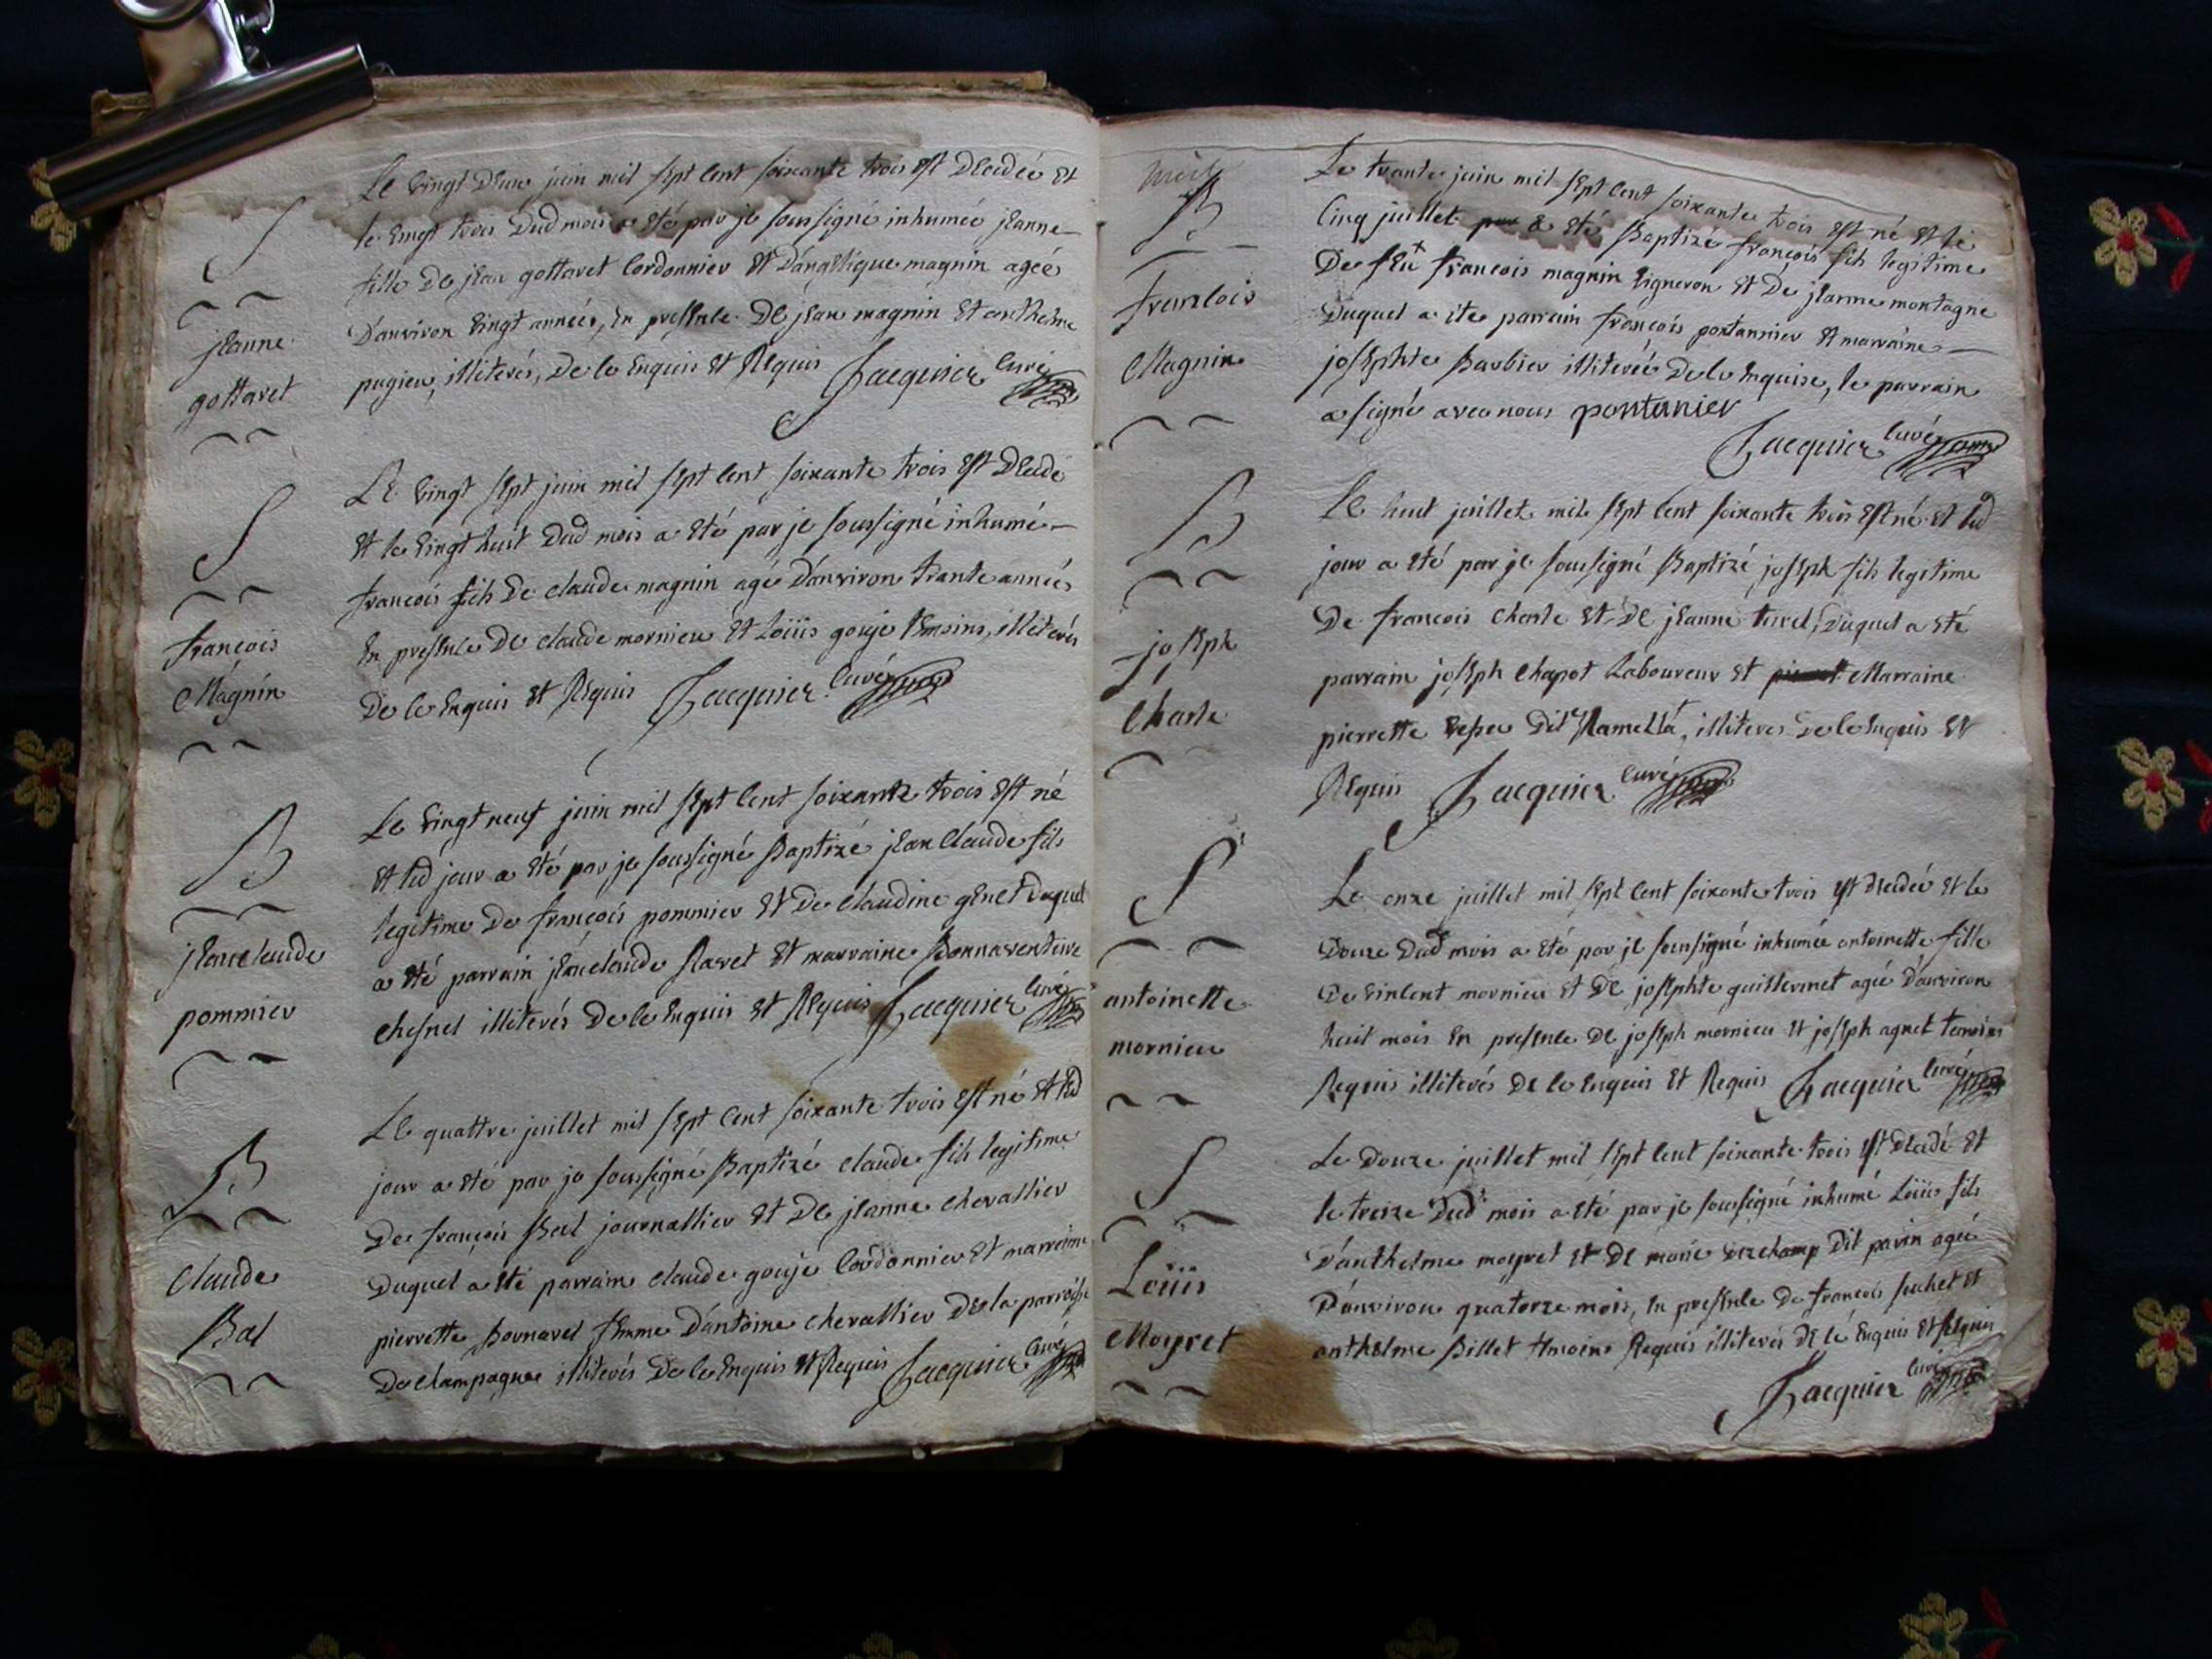 S
jeanne
gottaret
Le vingt deux juin mil sept cent soixante trois est decedée et
le vingt trois dud mois a eté par je soussigné inhumée jeanne
fille de jean gottaret cordonnier et d'angelique magnin ageé
d'anviron vingt anneés, en presence de jean magnin et anthelme
pugieu, illiterés, de ce enquis et requis Jacquier curé
S
françois
Magnin
Le vingt sept juin mil sept cent soixante trois est decedé
et le vingt huit dud mois a eté par je soussigné inhumé
françois fils de claude magnin agé d'anviron trante anneés
en presence de claude mornieu et Loüis gouje temoins, illiterés
de ce enquis et requis Jacquier curé
B
jean claude
pommier
Le vingt neuf juin mil sept cent soixante trois est né
et lud jour a eté par je soussigné Baptizé jean claude fils
legitime de françois pommier et de claudine genet duquel
a eté parrain jean claude ravet et marraine Bonnaventure
chesnel illiterés de ce enquis et requis Jacquier curé
B
Claude
Bal
Le quattre juillet mil sept cent soixante trois est né et lud
jour a eté par je soussigné Baptizé claude fils legitime
de françois Bal journallier et de jeanne chevallier
duquel a eté parrain claude gouje cordonnier et marraine
pierrette Bornarel femme d'antoine chevallier de la parroisse
de champagne illiterés de ce enquis et requis Jacquier curé
B
francois
Magnin
Le trante juin mil sept cent soixante trois est né et le
cinq juillet a eté Baptizé françois fils legitime
de feu françois magnin vigneron et de jeanne montagne
duquel a ete parrain françois pontannier et marraine
josephte Barbier illitereé de ce enquise, le parrain
a signé avec nous pontanier
Jacquier curé
B
joseph
Charle
Le huit juillet mil sept cent soixante trois est né et lud
jour a eté par je soussigné Baptizé joseph fils legitime
de francois charle et de jeanne turel, duquel a eté
parrain joseph chapot Laboureur et Marraine
pierrette dit Ramella, illiteres de ce enquis et
requis Jacquier curé
S
antoinette
mornieu
Le onze juillet mil sept cent soixante trois est decedeé et le
douze dud mois a eté par je soussigné inhumée antoinette fille
de vincent mornieu et de josephte guillermet ageé d'anviron
huit mois en presence de joseph mornieu et joseph agnet temoins
requis illiterés de ce enquis et requis Jacquier curé
S
Loüis
Moyret
Le douze juillet mil sept cent soixante trois est decedé et
le treize dud mois a eté par je soussigné inhumé Loüis fils
d'anthelme moyret et de marie dit pavin ageé
d'anviron quatorze mois, en presence de francois suchet et
anthelme Billet temoins requis illiterés de ce enquis et requis
Jacquier curé